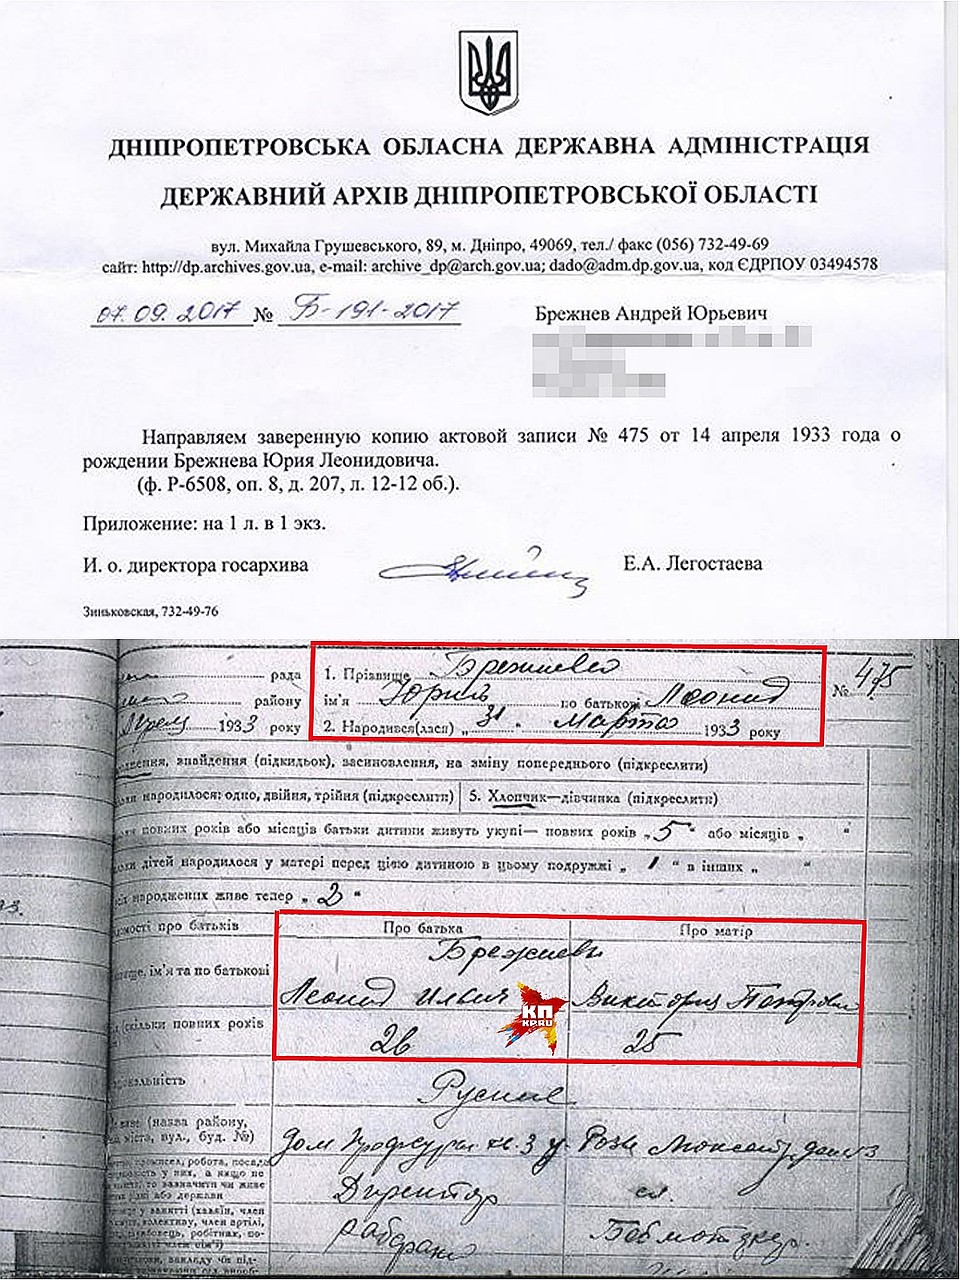 ДНІПРОПЕТРОВСЬКА ОБЛАСНА ДЕРЖАВНА АДМІНІСТРАЦІЯ
ДЕРЖАВНИЙ АРХІВ ДНІПРОПЕТРОВСЬКОЇ ОБЛАСТІ
вул. Михайла Грушевського, 89, м. Дніпро, 49069, тел./ факс (056) 732-49-69
сайт: http://dp.archives.gov.ua, e-mail: archive_dp@arch.gov.ua; dado@adm.dp.gov.ua, код ЄДРПОУ 03494578
07.09.2017 № Б-191-2017
Брежнев Андрей Юрьевич
Направляем заверенную копию актовой записи № 475 от 14 апреля 1933 года о
рождении Брежнева Юрия Леонидовича.
(ф. Р-6508, оп. 8, д. 207, л. 12-12 об.).
Приложение: на 1 л. в 1 экз.
И. о. директора госархива
Е.А. Легостаева
Зиньковская, 732-49-76
рада 1. Прізвище Брежнев № 475
району ім'я Юрий по батькові Леонид
1933 року 2. Народився(лася) „31" марта 1933 року
знайдення (підкидьок), засиновлення, на зміну попереднього (підкреслити)
народилося: одно, двійня, трійня (підкреслити) 5. Хлопчик—дівчинка (підкреслити)
повних років або місяців батьки дитини живуть укупі— повних років „5" або місяців „ "
дітей народилося у матері перед цією дитиною в цьому подружжі „1" в інших „ "
народжених живе тепер „2"
про батьків Про батька Про матір
Брежневы
ім'я та по батькові Леонид Ильич Виктория Петровна
КП
KP.RU
скільки повних років 26 25
Руские
(назва району,
міста, вул., буд. №) Дом кв. 3 у. Розы
робота, посада
Директор
рабфака